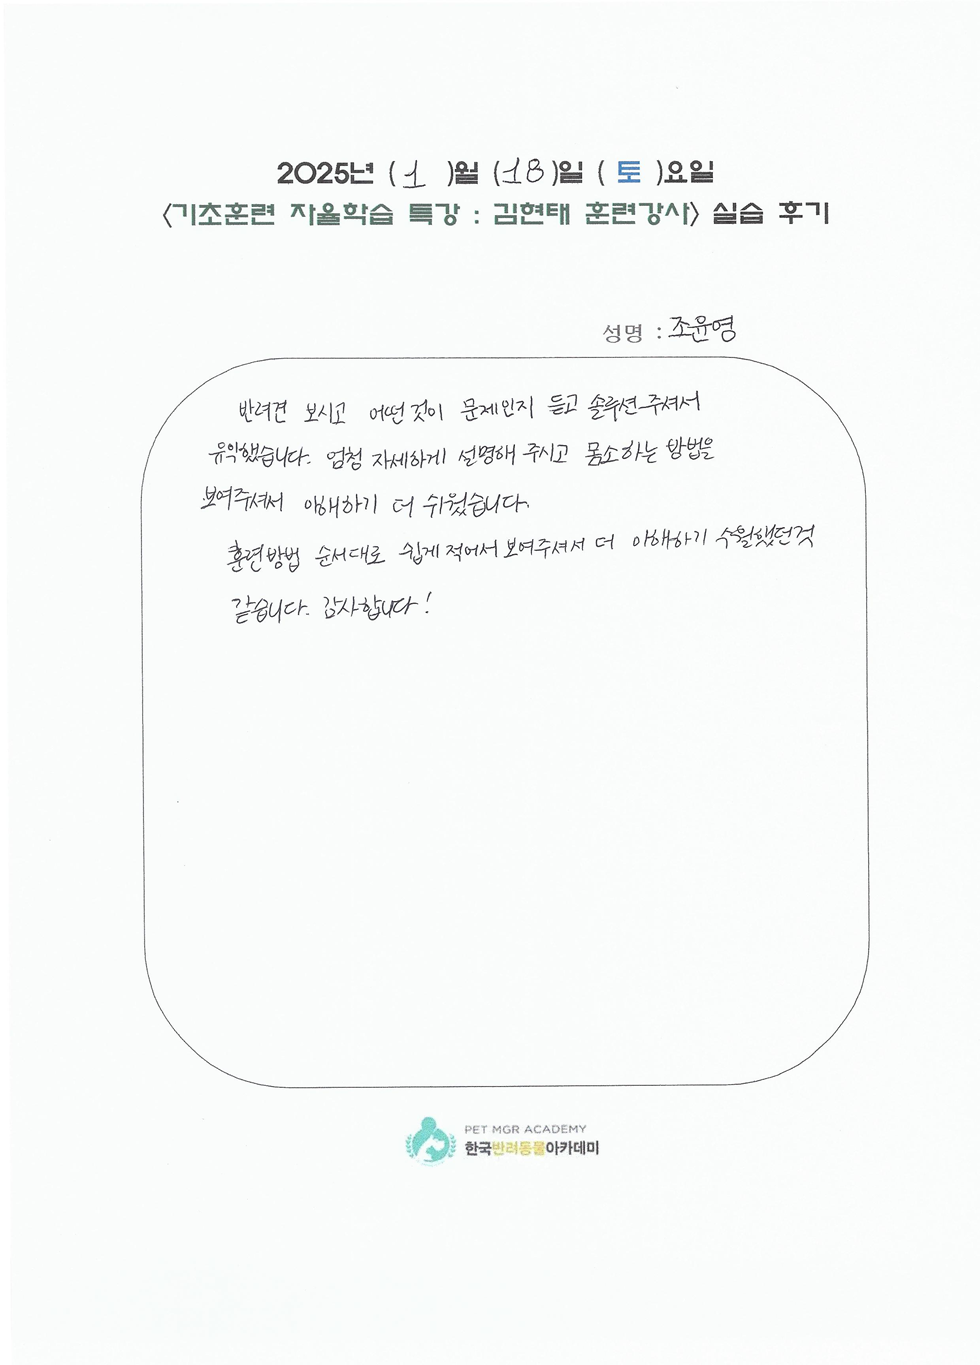 2025년 ( 1 )월 (18)일 ( 토 )요일
<기초훈련 자율학습 특강 : 김현태 훈련강사> 실습 후기
성명 : 조윤영
반려견 보시고 어떤것이 문제인지 듣고 솔루션주셔서
유익했습니다. 엄청 자세하게 설명해 주시고 몸소하는 방법을
보여주셔서 이해하기 더 쉬웠습니다.
훈련방법 순서대로 쉽게 적어서 보여주셔서 더 이해하기 수월했던것
같습니다. 감사합니다!
PET MGR ACADEMY
한국반려동물아카데미